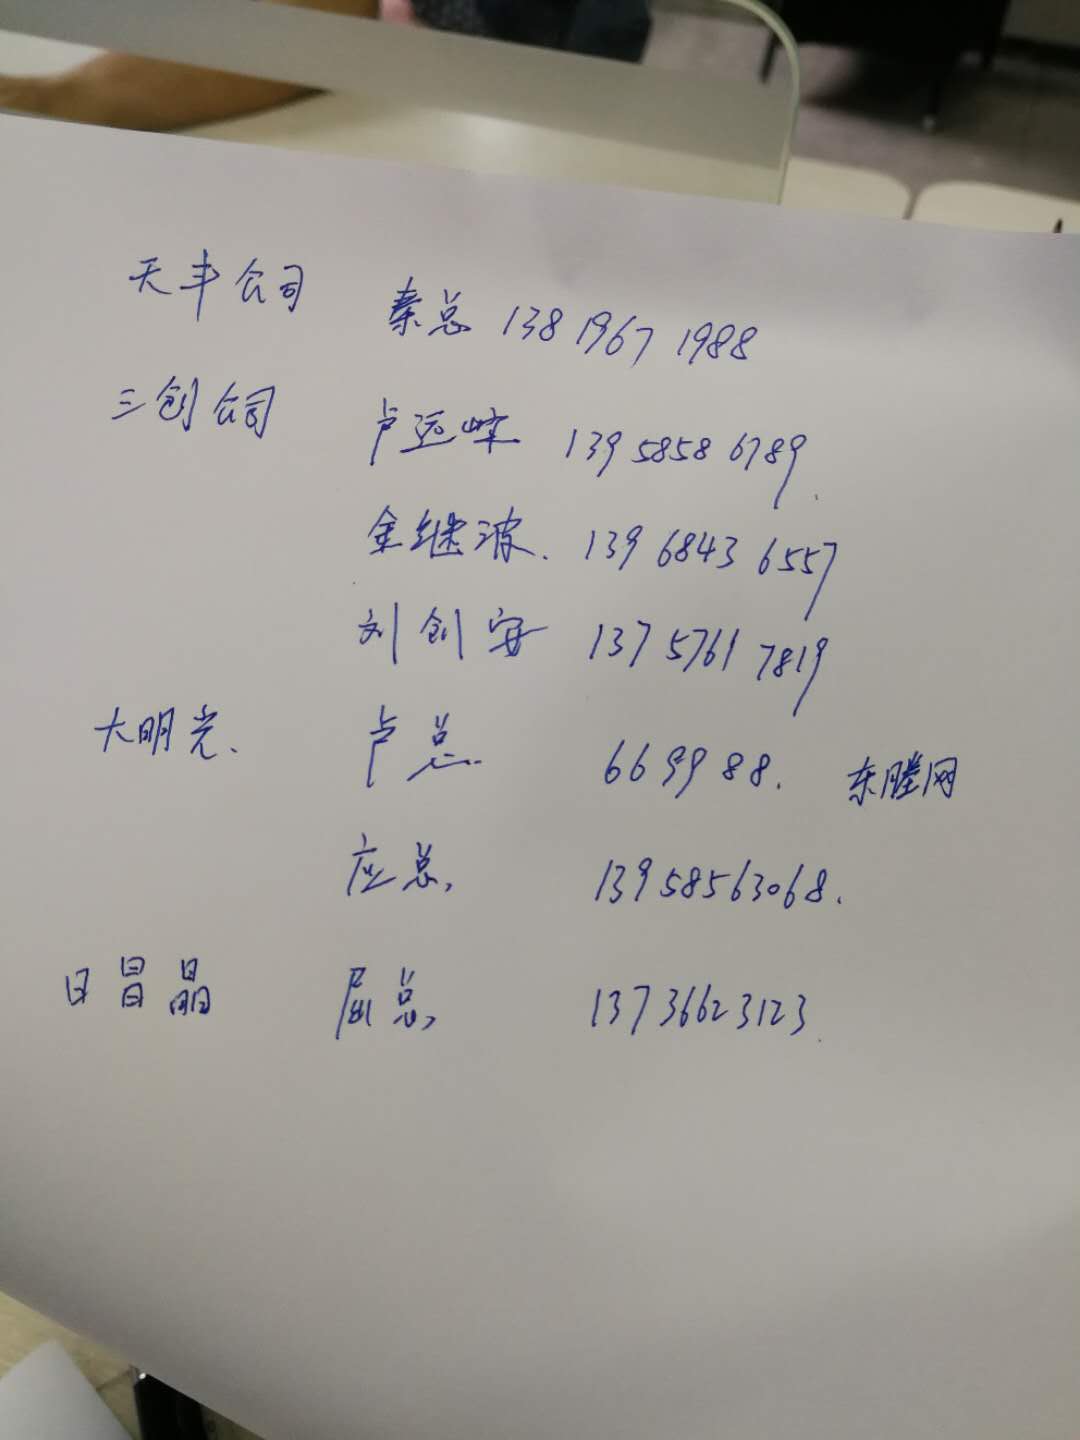 天丰公司 秦总 138 1967 1988
三创公司 卢远峰 139 5858 6789.
金继波. 139 6843 6557
刘创安 137 5761 7819
大明光、 卢总. 669988. 东塍网
应总, 13958563068.
日昌晶 屈总, 13736623123.